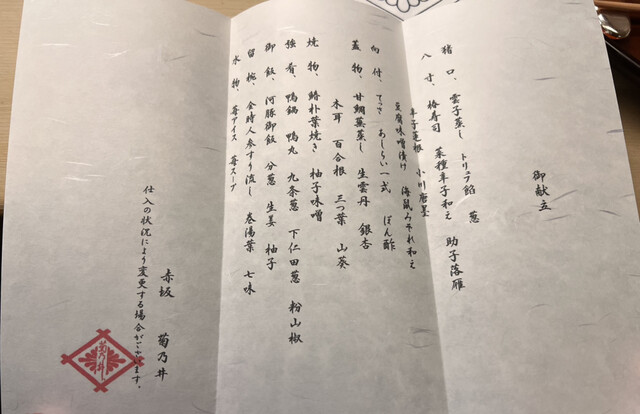 御献立
猪口、雲子蒸し　トリュフ餡　葱
八寸、梅寿司　菜種辛子和え　助子落雁
辛子蓮根　小川唐墨
豆腐味噌漬け　海鼠みぞれ和え
向付、てっさ　あしらい一式　ぽん酢
蓋物、甘鯛蕪蒸し　生雲丹　銀杏
木耳　百合根　三つ葉　山葵
焼物、鰆朴葉焼き　柚子味噌
強肴、鴨鍋　鴨丸　九条葱　下仁田葱　粉山椒
御飯、河豚御飯　分葱　生姜　柚子
留椀、金時人参すり流し　巻湯葉　七味
水物、苺アイス　苺スープ
赤坂　菊乃井
仕入の状況により変更する場合がございます。
菊乃井